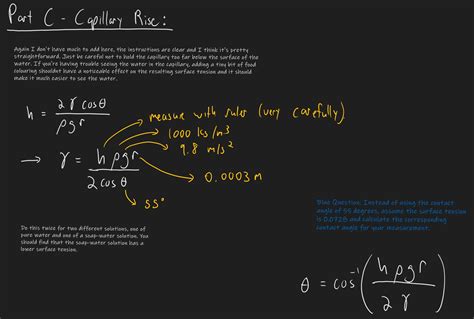 Part C - Capillary Rise:
Again I don't have much to add here, the instructions are clear and I think it's pretty
straightforward. Just be careful not to hold the capillary too far below the surface of the
water. If you're having trouble seeing the water in the capillary, adding a tiny bit of food
colouring shouldn't have a noticeable effect on the resulting surface tension and it should
make it much easier to see the water.
h = 2γcosθ / ρgr
→ γ = hρgr / 2cosθ
measure with ruler (very carefully)
1000 kg/m³
9.8 m/s²
0.0003 m
55°
Do this twice for two different solutions, one of
pure water and one of a soap-water solution. You
should find that the soap-water solution has a
lower surface tension.
Blue Question: Instead of using the contact
angle of 55 degrees, assume the surface tension
is 0.0728 and calculate the corresponding
contact angle for your measurement.
θ = cos⁻¹(hρgr / 2γ)